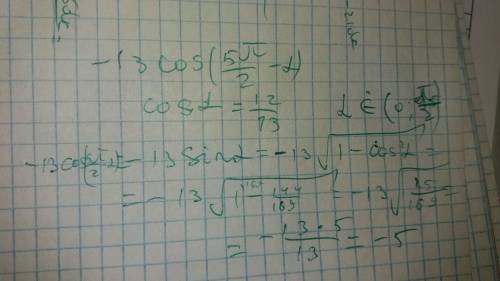 -13 cos(5π/2 - α)
cos α = 12/13 α ∈ (0; π/2)
-13 cos(5π/2 - α) = -13 sin α = -13 √(1 - cos α) =
= -13 √(1 - 144/169) = -13 √(25/169) =
= -13·5/13 = -5